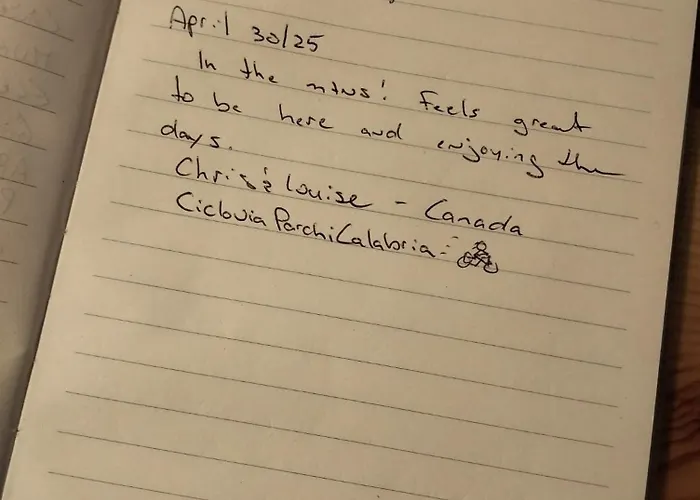 April 30/25
In the mtns! Feels great
to be here and enjoying the
days.
Chris & Louise - Canada
Ciclovia Parchi Calabria -